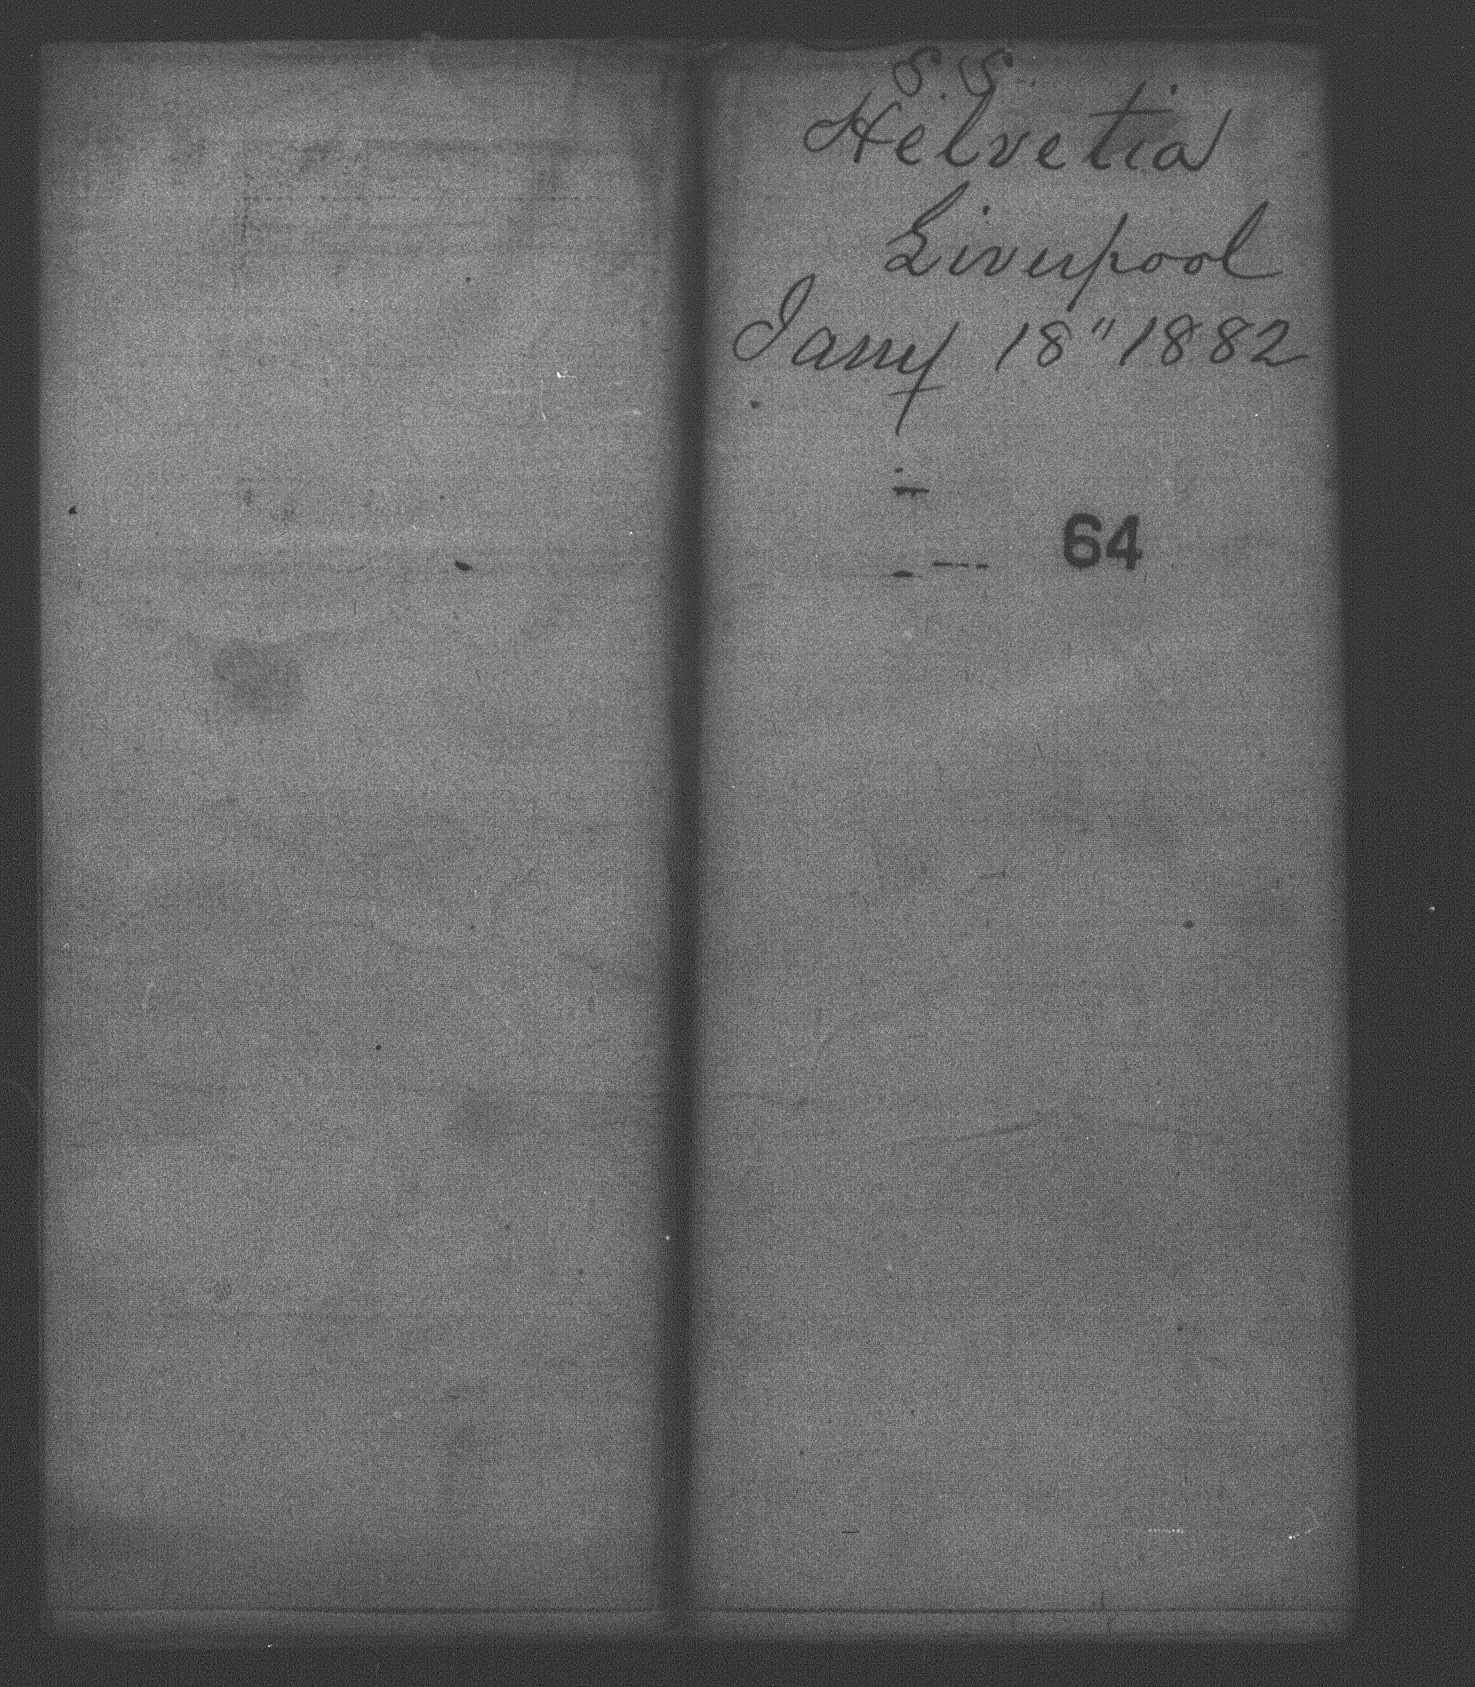 S.S.
Helvetia
Liverpool
Jany 18" 1882
64